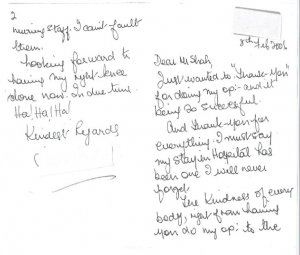 8th Feb 2006
Dear Mr Shah,
Just wanted to "thank-you"
for doing my op: and it
being so sucessful.
And thank-you for
everything. I must say
my stay in Hospital has
been one I will never
forget
The Kindness of every
body, right from having
you do my op: to the
2
nursing staff. I can't fault
them.
Looking forward to
having my right knee
done now. In due time.
Ha! Ha! Ha!
Kindest Regards